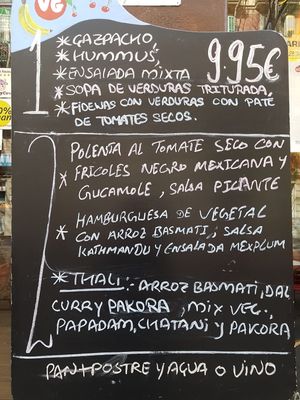 VG
1
*GAZPACHO
*HUMMUS,
*ENSALADA MIXTA
9.95€
*SOPA DE VERDURAS TRITURADA,
*FIDENAS CON VERDURAS CON PATÉ
DE TOMATES SECOS.
2
POLENTA AL TOMATE SECO CON
* FRICOLES NEGRO MEXICANA Y
GUCAMOLE, SALSA PICANTE
HAMBURGUESA DE VEGETAL
* CON ARROZ BASMATI, SALSA
KATHMANDU Y ENSALADA MEXPLUM
*THALI:- ARROZ BASMATI, DAL
CURRY PAKORA, MIX VEG.
PAPADAM, CHATANI Y PAKORA
PAN+POSTRE Y AGUA O VINO